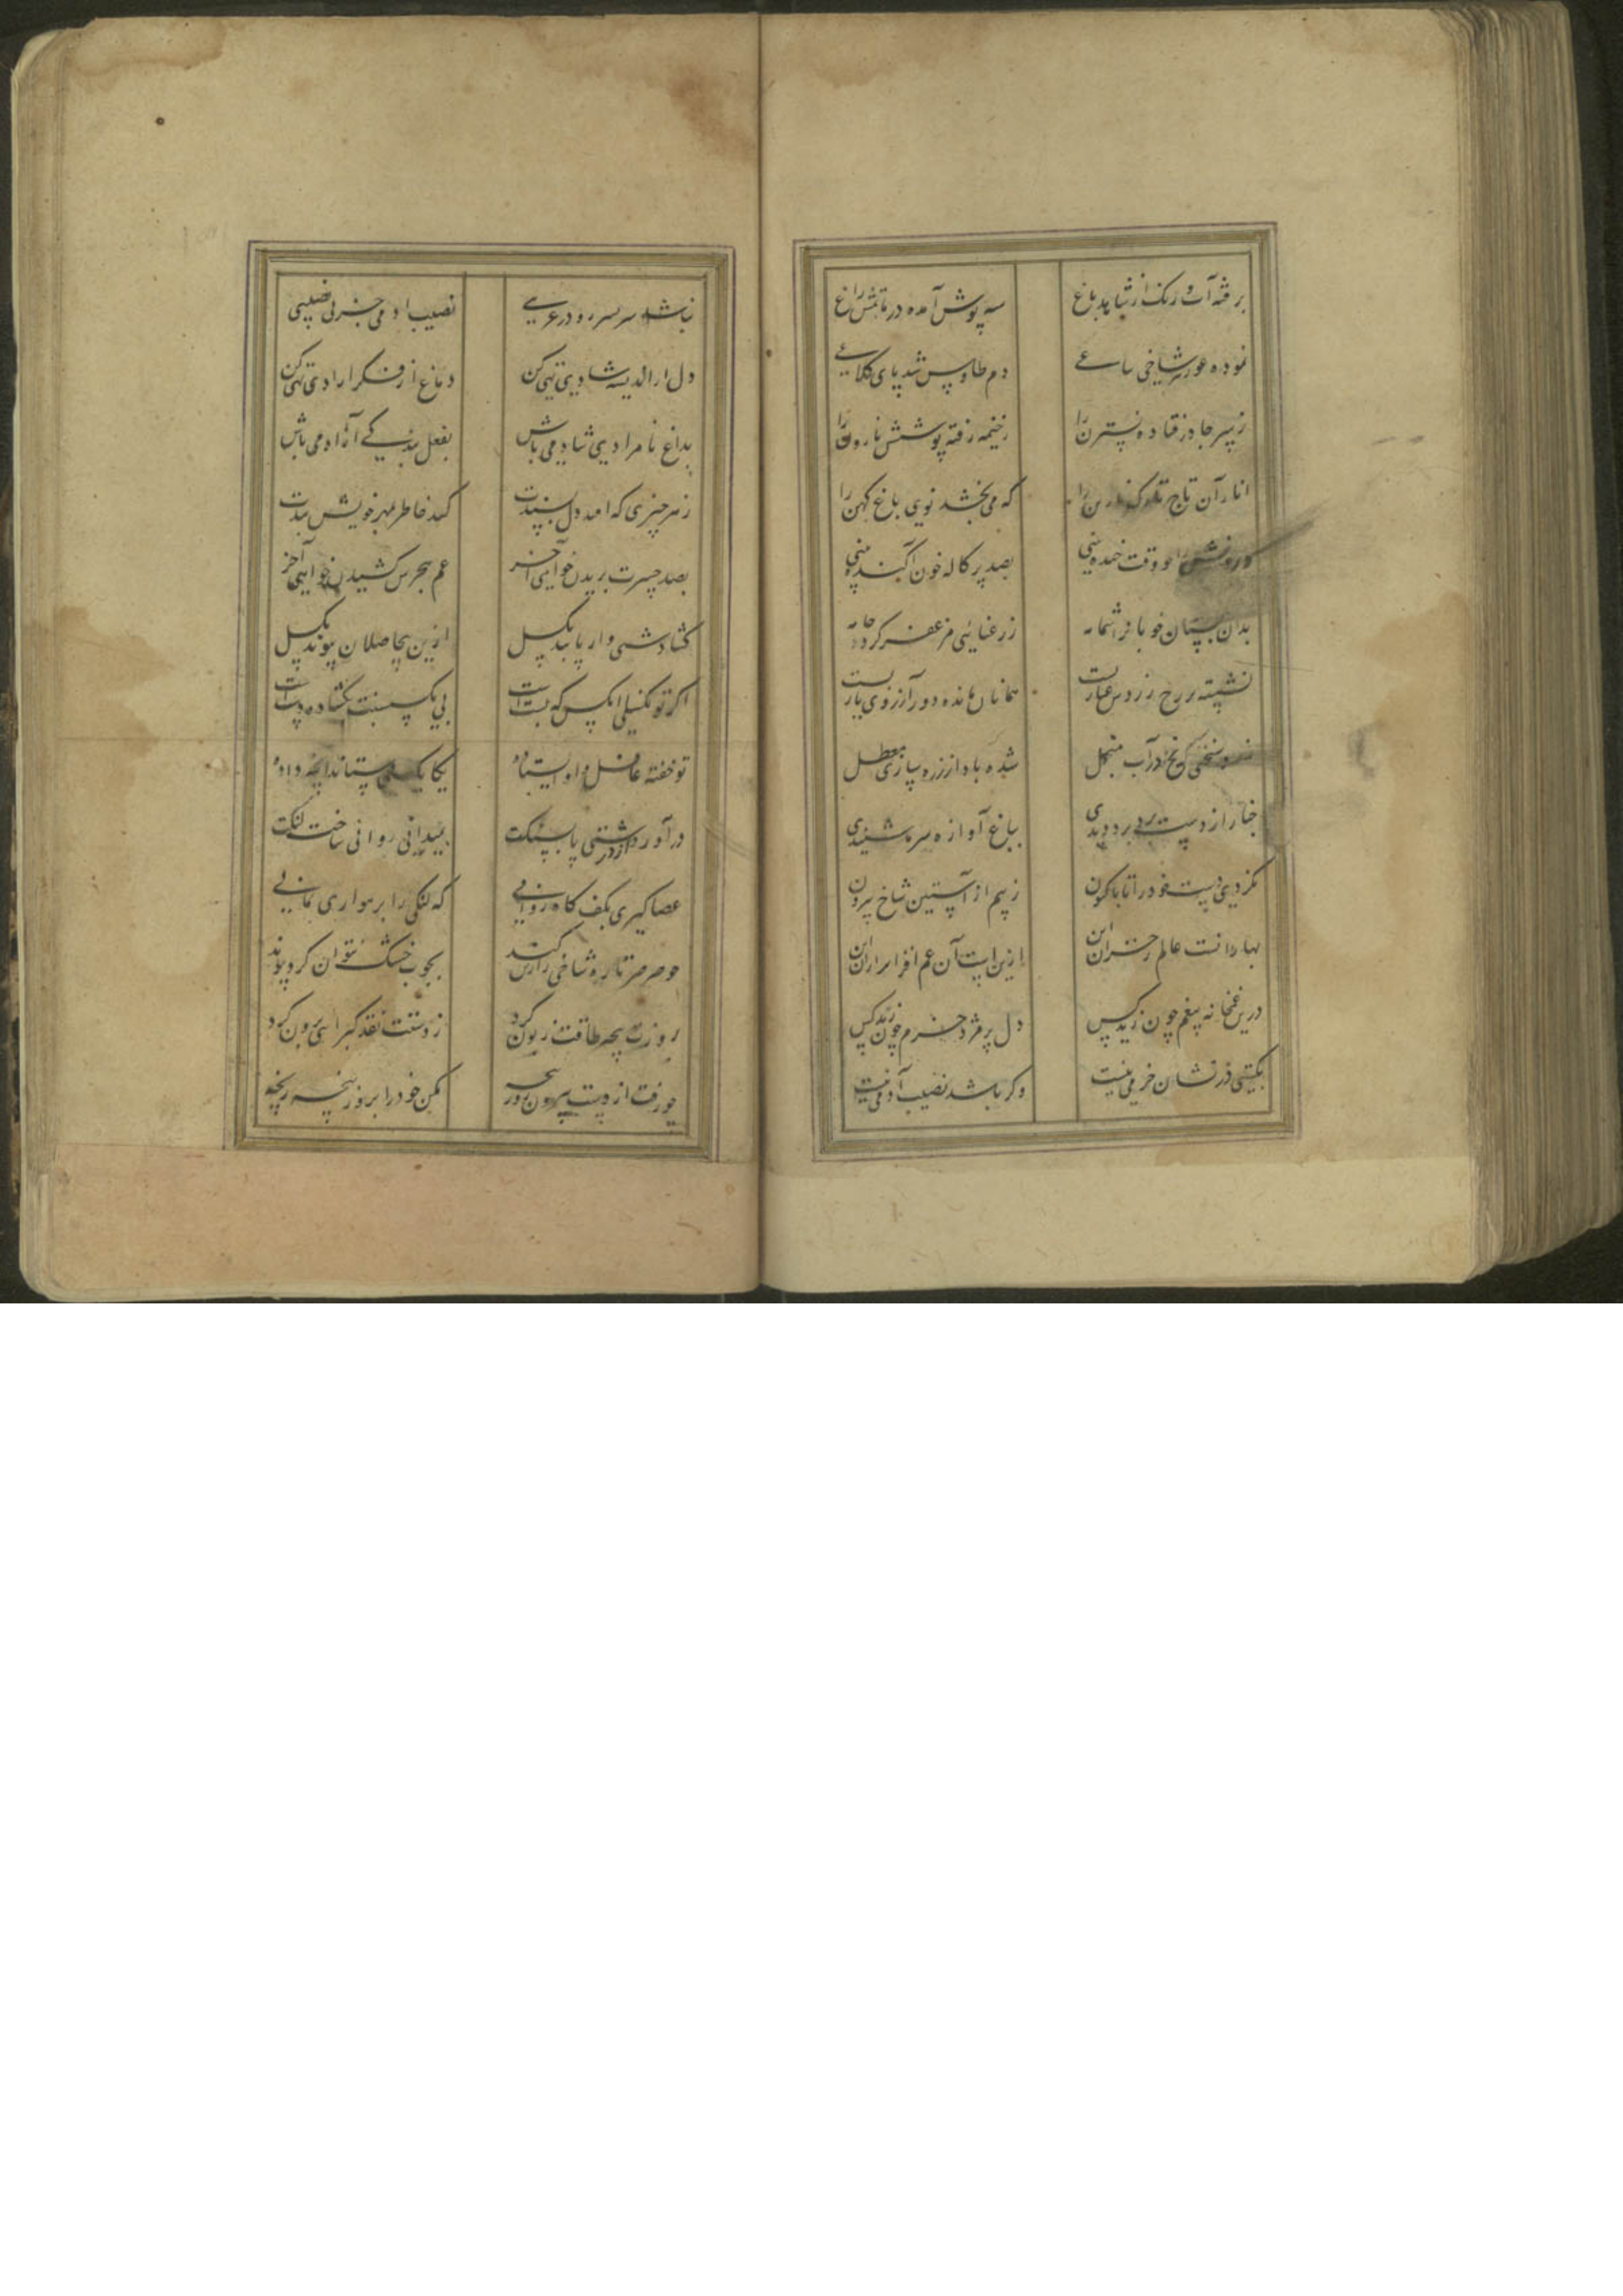 برفته آب و رنگ از شاهد باغ سیه پوش آمده در ماتمش راغ
نموده عور هر شاخی ساعی دم طاوس شد پای کلاغی
ز سر چادر فتاده نسترن را ز خیمه رفته پوشش نارون را
انار آن تاج که می بخشد نوی باغ کهن را
وقت خنده بینی بصد پرکاله خون آکنده بینی
بدان بستان خوبان ز رعنائی مزعفر کرده جامه
نشسته بر رخ زردس غبارست همانا مانده دور از روی یارست
یخ در آب منجل شده باد از زره سازی معطل
چنار از دست برد برد دیدی بباغ آوازه سرما شنیدی
نکردی دست خود را تا باکنون ز بیم از آستین شاخ بیرون
بهار آنست عالم را خزان این ازین است آن غم افزا بر از آن این
درین غمخانه بیغم چون زید کس دل پژمرده خرم چون زید کس
بگیتی در نشان خرمی نیست وگر باشد نصیب آدمی نیست
نباشد نصیب آدمی جز بی نصیبی
دل از اندیشه شادی تهی کن دماغ از فکر آزادی تهی کن
بداغ نامرادی شاد می باش بغل بندگی آزاد می باش
ز هر چیزی که آمد دل پسندت کند خاطر بمهر خویش بندت
بصد حسرت بریدن خواهی آخر غم هجرش کشیدن خواهی آخر
گشادش وار پا بند بگسل ازین بیحاصلان پیوند بگسل
اگر تو نگسلی آنکس که بستست پی بگسستنت بگشاده دستست
تو خفته غافل و او ایستاده یکایک می ستاند آنچه داده
در آورد از درشتی پا بسنگت بمیدان روانی ساخت لنگت
عصا گیری بکف گاه روانی که لنگی را برهواری نمائی
چو صرصر تازه شاخی را ز کند بچوب خشک نتوان کرد پیوند
بروزت پنجه طاقت زبون کرد ز دستت نقد گیرائی برون کرد
چو رفت از دست بیرون زور پنجه مکن خود را بزور پنجه رنجه